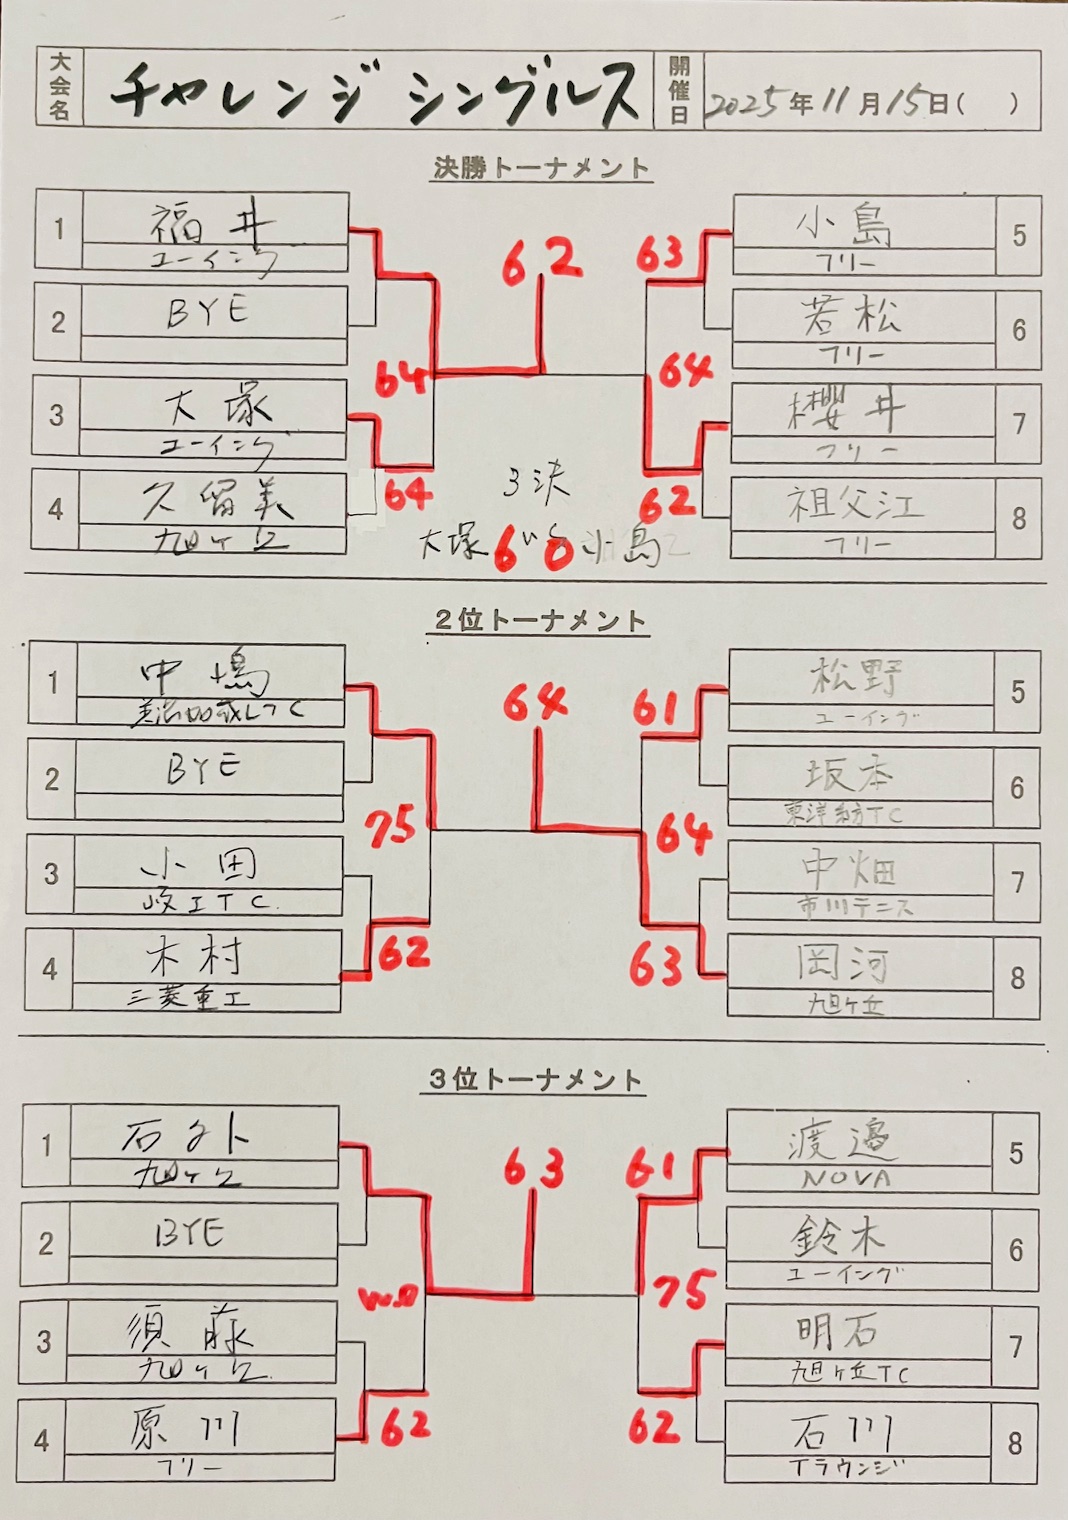 大会名 チャレンジシングルス 開催日 2025年11月15日( )
決勝トーナメント
1 福井 ユーイング
2 BYE
3 大塚 ユーイング
4 久留美 旭ヶ丘
64
64
62
63
64
62
5 小島 フリー
6 若松 フリー
7 櫻井 フリー
8 祖父江 フリー
3決
大塚 6 vs 0 小島
2位トーナメント
1 中嶋
2 BYE
3 小田 岐工TC.
4 木村 三菱重工
75
62
64
61
64
63
5 松野 ユーイング
6 坂本 東洋紡TC
7 中畑 市川テニス
8 岡河 旭ヶ丘
3位トーナメント
1 旭ヶ丘
2 BYE
3 須藤 旭ヶ丘
4 原川 フリー
w.o
62
63
61
75
62
5 渡邉 NOVA
6 鈴木 ユーイング
7 明石 旭ヶ丘TC
8 石川 Tラウンジ